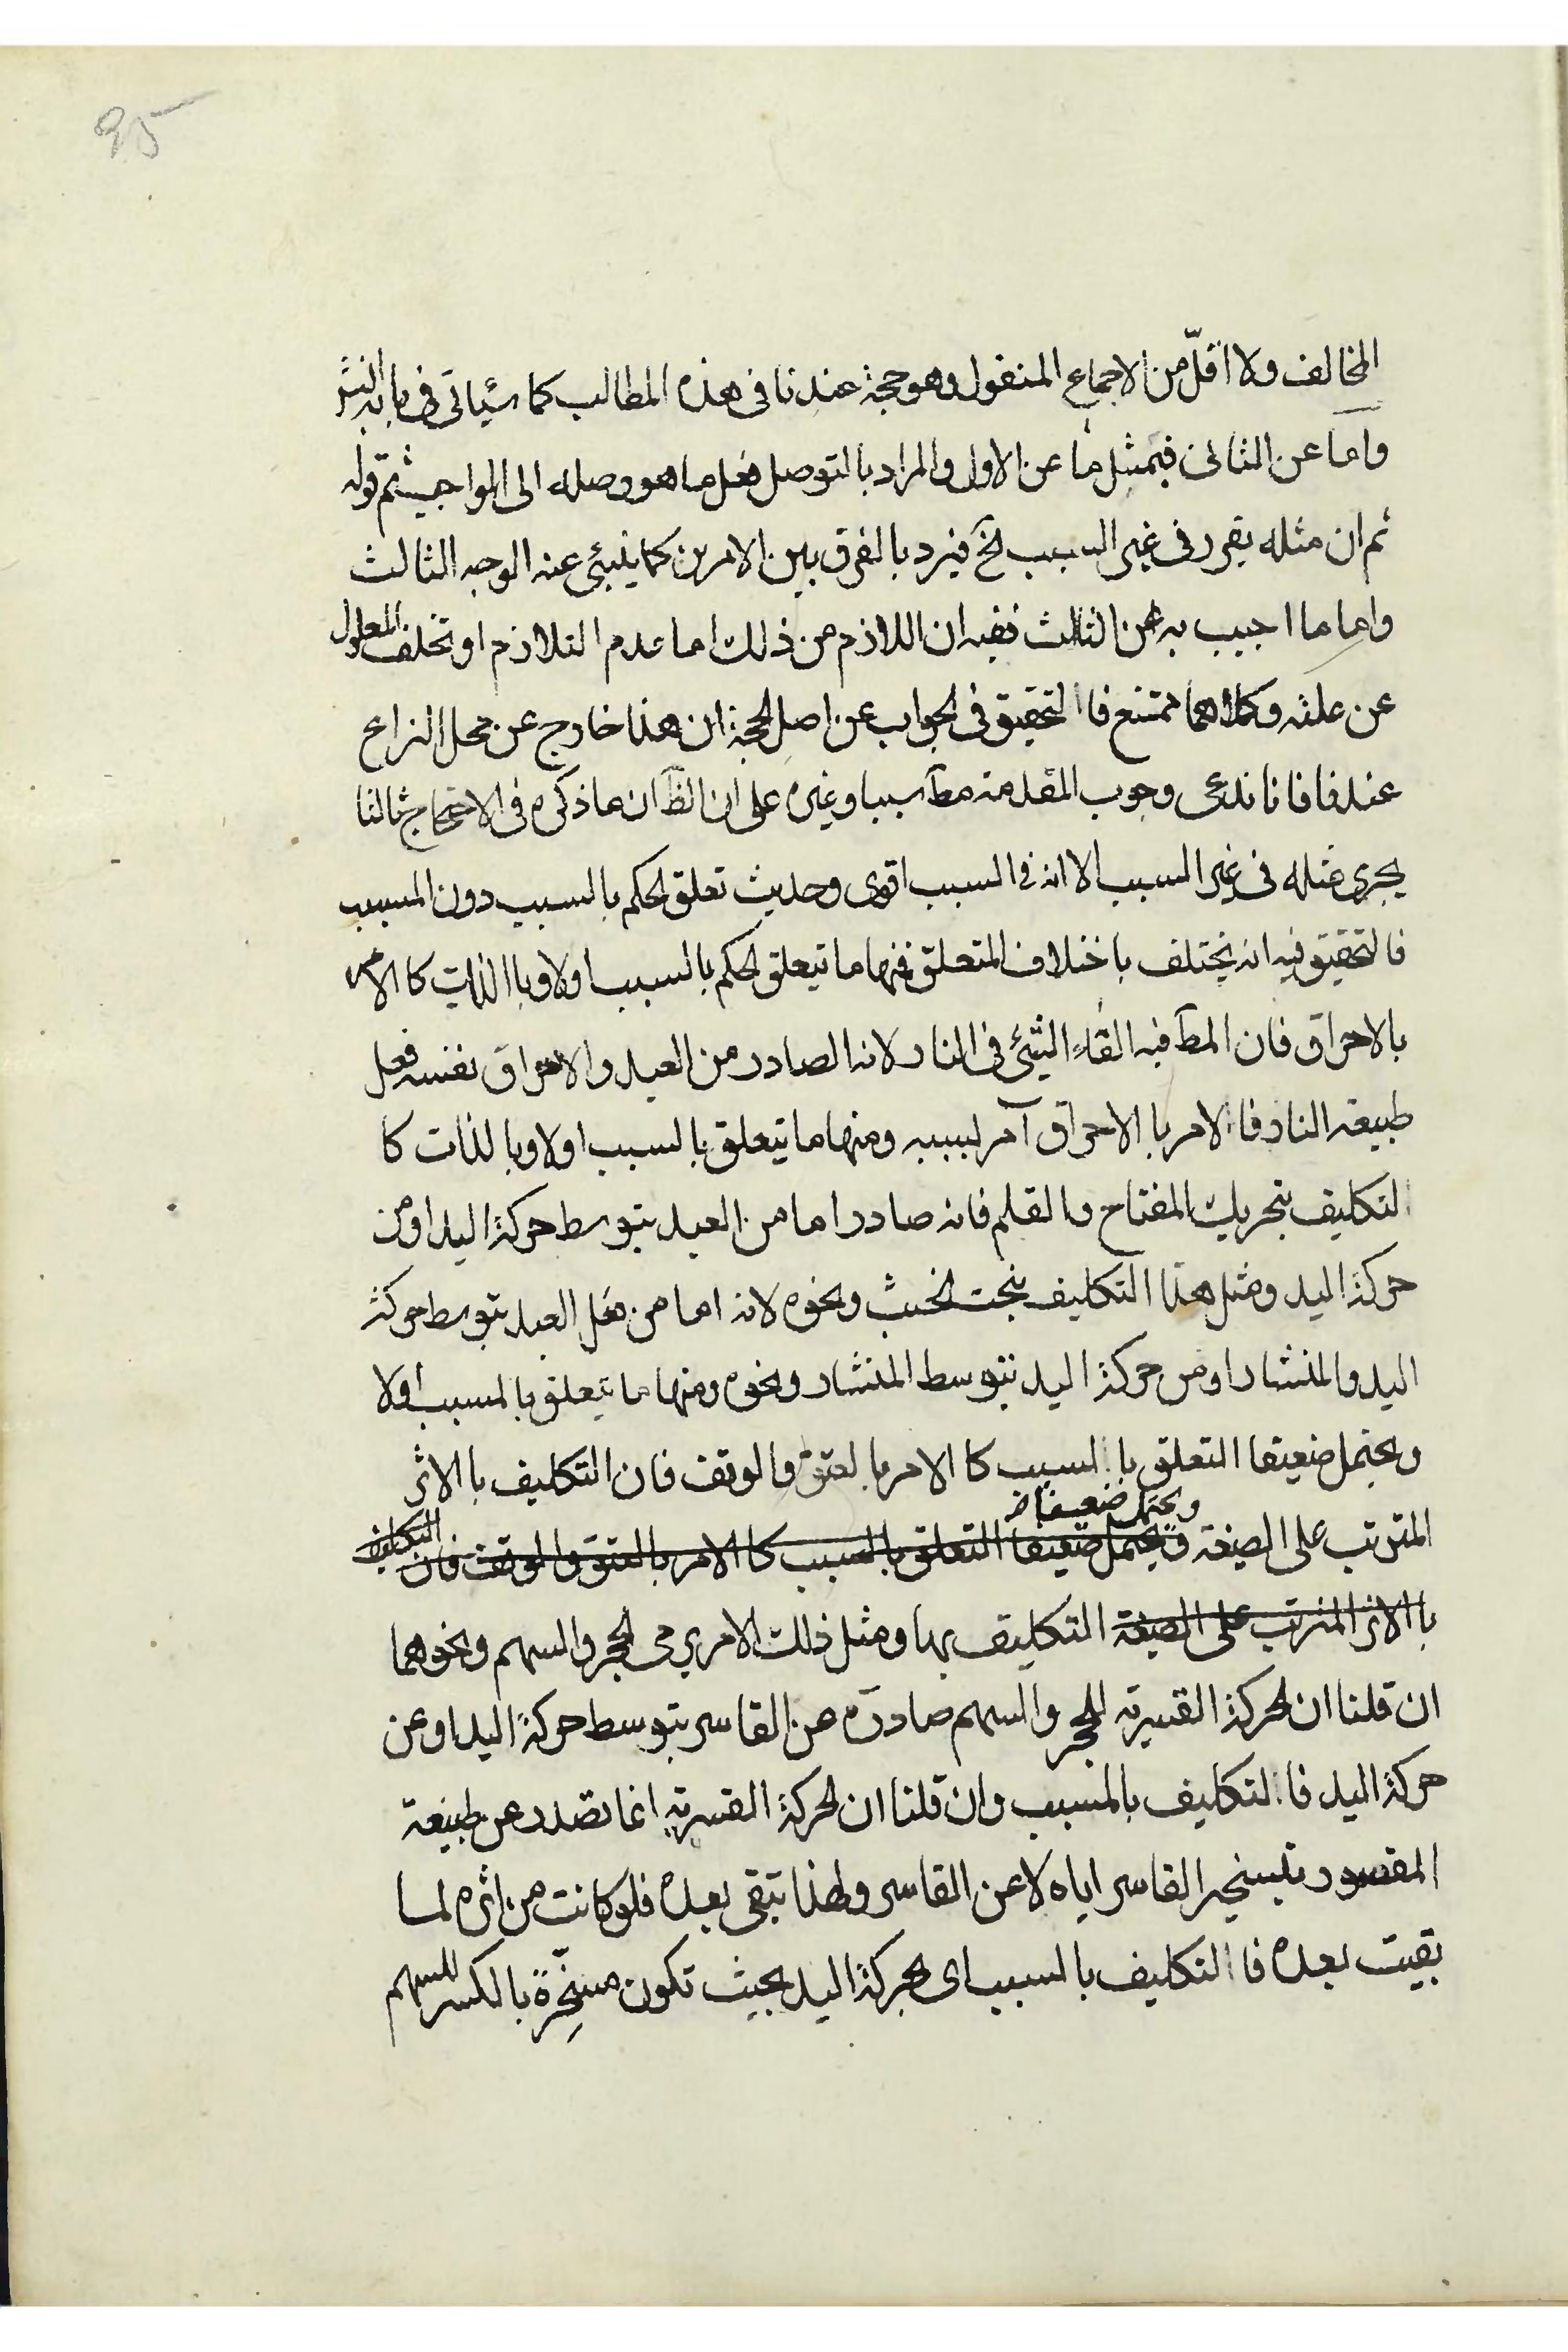 95
المخالف ولا اقلّ من الاجماع المنقول وهو حجة عندنا فى هذه المطالب كما سيأتى فى بابه
وامّا عن الثانى فبمثل ما عن الاول والمراد بالتوصل فعل ما هو وصله الى الواجب ثم قوله
ثم ان مثله يقرر فى غير السبب الخ فيرد بالفرق بين الامرين كما ينبئ عنه الوجه الثالث
واما ما اجيب به عن الثالث ففيه ان اللازم من ذلك اما عدم التلازم او تخلف المعلول
عن علته وكلاهما ممتنع فا التحقيق فى الجواب عن اصل الحجة ان هذا خارج عن محل النزاع
عندنا فانا ندعى وجوب المقدمة مطّ سببا وغيره على ان الظّ ان ما ذكره فى الاحتجاج ثالثا
يجرى مثله فى غير السبب الا انه فى السبب اقوى وحديث تعلق الحكم بالسبب دون المسبب
فالتحقيق فيه انه يختلف باختلاف المتعلق فمنها ما تيعلق الحكم بالسبب اولا وبا الذات كا الامر
بالاحراق فان المطّ فيه القاء الشئ فى النار لانه الصادر من العبد والاحراق نفسه فعل
طبيعة النار فا الامر با الاحراق آمر لسببه ومنها ما تيعلق بالسبب اولا وبا لذات كا
التكليف بتحريك المفتاح والقلم فانه صادر اما من العبد بتوسط حركة اليد او من
حركة اليد ومثل هذا التكليف بنحت الخشب ونحوه لانه اما من فعل العبد بتوسط حركة
اليد والمنشار او من حركة اليد بتوسط المنشار ونحوه ومنها ما تيعلق بالمسبب اولا
ويحتمل ضعيفا التعلق با لسبب كا الامر با لعتق والوقف فان التكليف با الاثر
ويحتمل ضعيفا
المترتب على الصيغة ويحتمل ضعيفا التعلق بالسبب كا الامر بالعتق والوقف فان التكليف
با الاثر المترتب على الصيغة التكليف بها ومثل ذلك الامر برمى الحجر والسهم ونحوهما
ان قلنا ان الحركة القسرية للحجر والسهم صادرة من القاسر بتوسط حركة اليد او عن
حركة اليد فا التكليف بالمسبب وان قلنا ان الحركة القسرية انما تصدر عن طبيعة
المقسور بتسخير القاسر اياه لا عن القاسر ولهذا تبقى بعده فلو كانت من اثره لما
بقيت بعده فا التكليف بالسبب اى بحركة اليد بحيث تكون مسخِّرة بالكسر للسهم